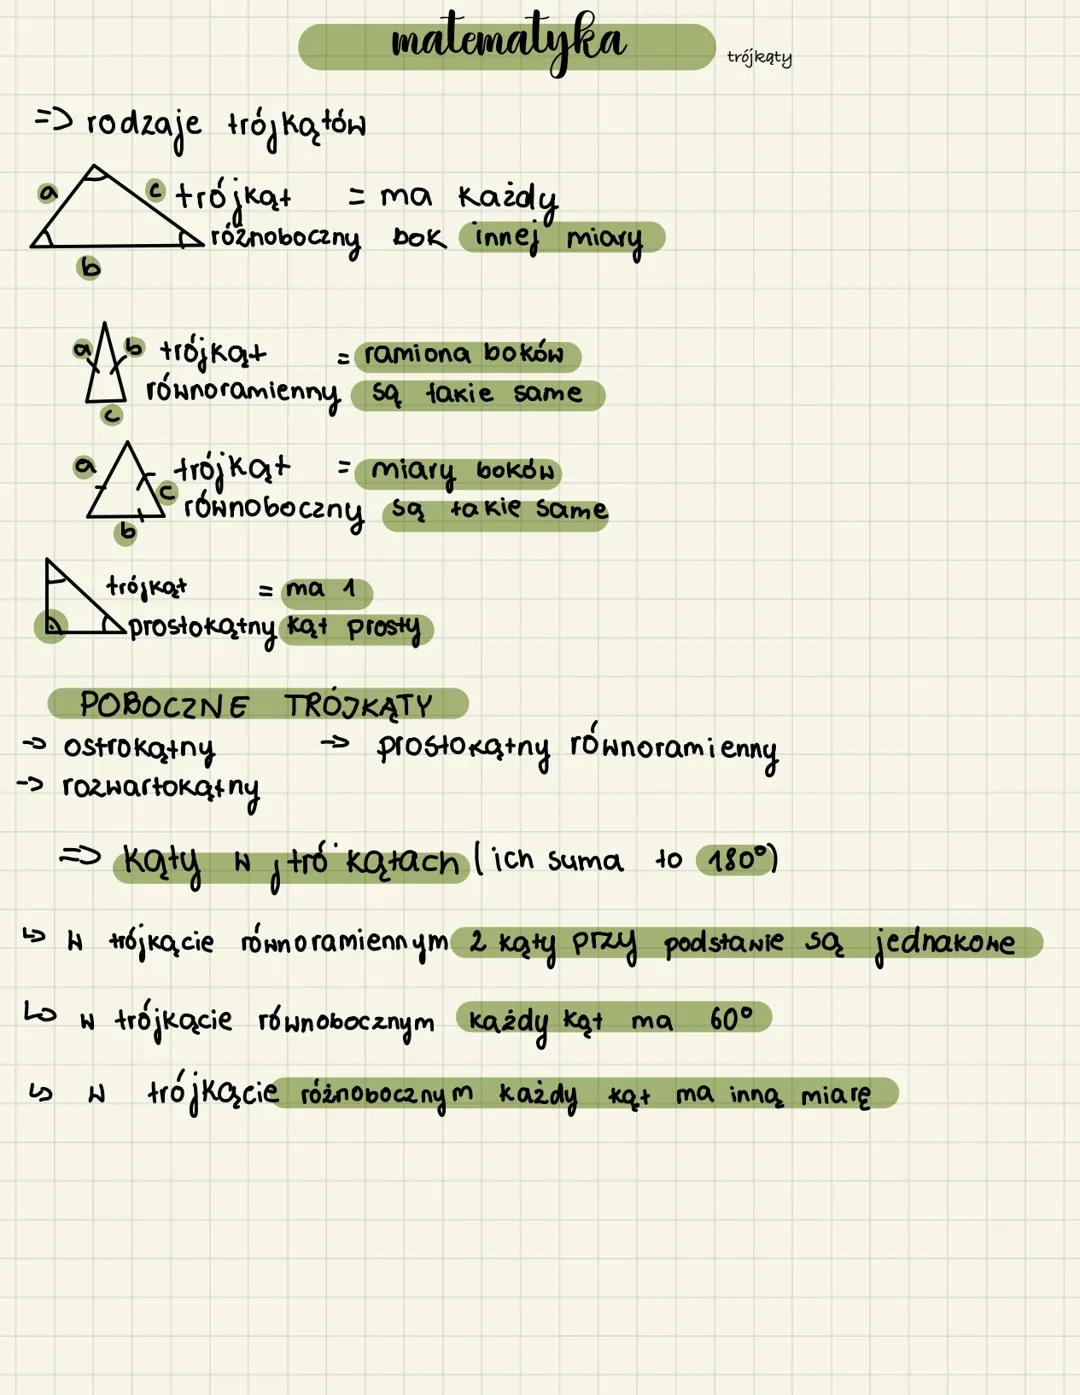 matematyka
trójkąty
=> rodzaje trójkątów
a
c trójkąt = ma każdy
różnoboczny bok innej miary
b
a b trójkąt = ramiona boków
równoramienny są takie same
c
a trójkąt = miary boków
c równoboczny są takie same
b
trójkąt = ma 1
prostokątny kąt prosty
POBOCZNE TRÓJKĄTY
→ ostrokątny → prostokątny równoramienny
→ rozwartokątny
=> kąty w trójkątach (ich suma to 180°)
↳ w trójkącie równoramiennym 2 kąty przy podstawie są jednakowe
↳ w trójkącie równobocznym każdy kąt ma 60°
↳ w trójkącie różnobocznym każdy kąt ma inną miarę